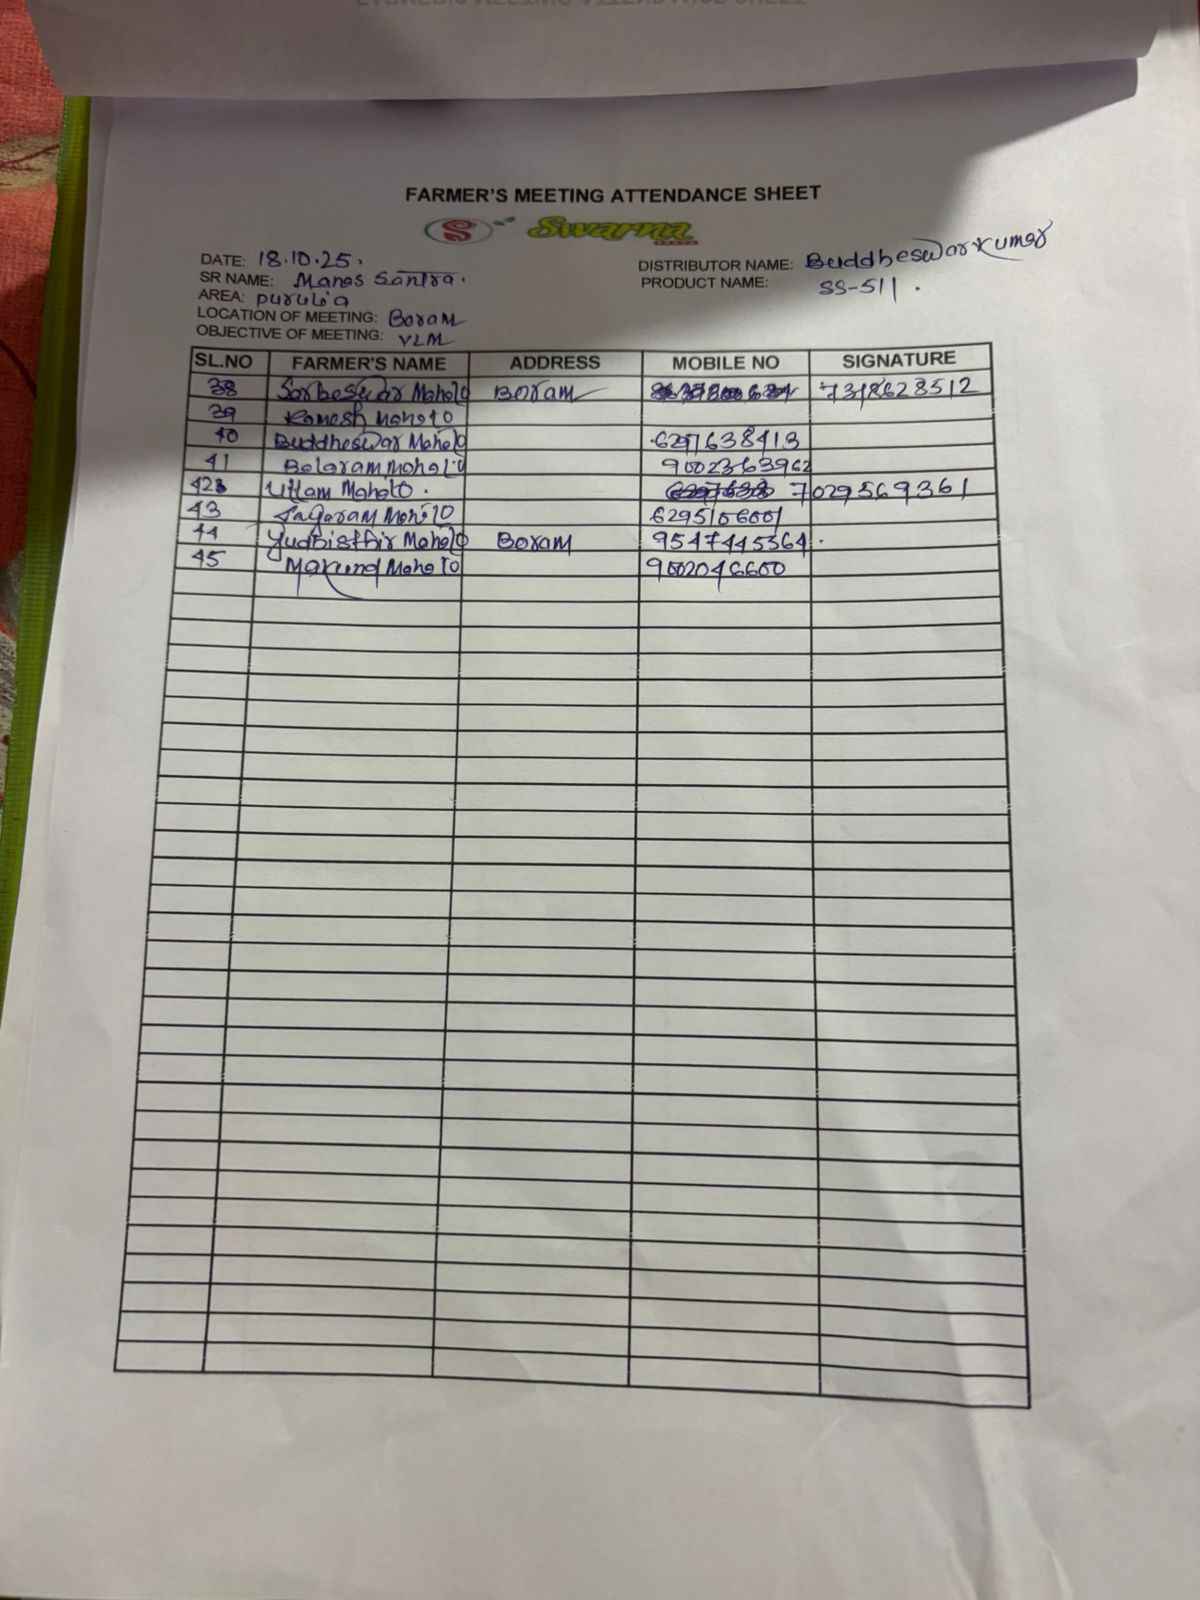 FARMER'S MEETING ATTENDANCE SHEET
S Swarna
DATE: 18.10.25.
DISTRIBUTOR NAME: Buddheswar Kumar
SR NAME: Manas Santra.
PRODUCT NAME: SS-511.
AREA: Purulia
LOCATION OF MEETING: Boram
OBJECTIVE OF MEETING: VLM
SL.NO FARMER'S NAME ADDRESS MOBILE NO SIGNATURE
38 Sarbeswar Mahato Boram 7318628512
39 Ramesh Mahato
40 Buddheswar Mahato 6297638413
41 Balaram Mahato 9002363962
42 Uttam Mahato. 7029569361
43 Jagaram Mahato 6295106001
44 Yudhisthir Mahato Boram 9547445364.
45 Makund Mahato 9002046600